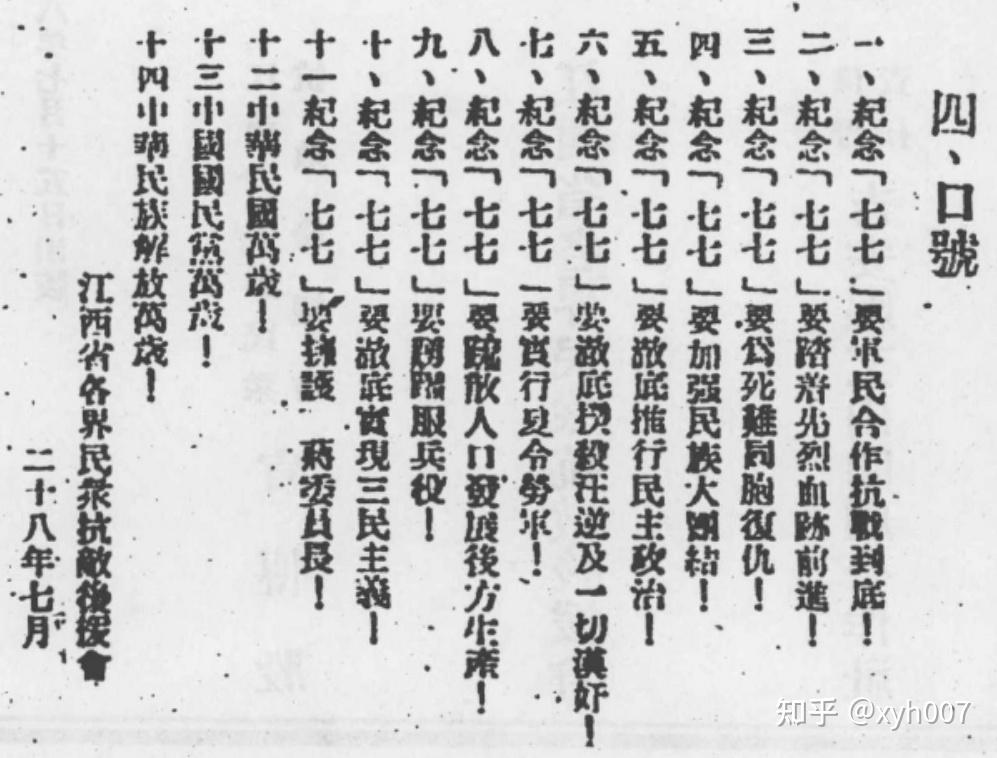 四、口號
一、紀念「七七」要軍民合作抗戰到底！
二、紀念「七七」要踏着先烈血跡前進！
三、紀念「七七」要爲死難同胞復仇！
四、紀念「七七」要加强民族大團結！
五、紀念「七七」要澈底推行民主政治！
六、紀念「七七」要澈底撲殺汪逆及一切漢奸！
七、紀念「七七」要實行夏令勞軍！
八、紀念「七七」要疏散人口發展後方生產！
九、紀念「七七」要踴躍服兵役！
十、紀念「七七」要澈底實現三民主義！
十一、紀念「七七」要擁護　蔣委員長！
十二中華民國萬歲！
十三中國國民黨萬歲！
十四中華民族解放萬歲！
江西省各界民衆抗敵後援會
二十八年七月
知乎 @xyh007